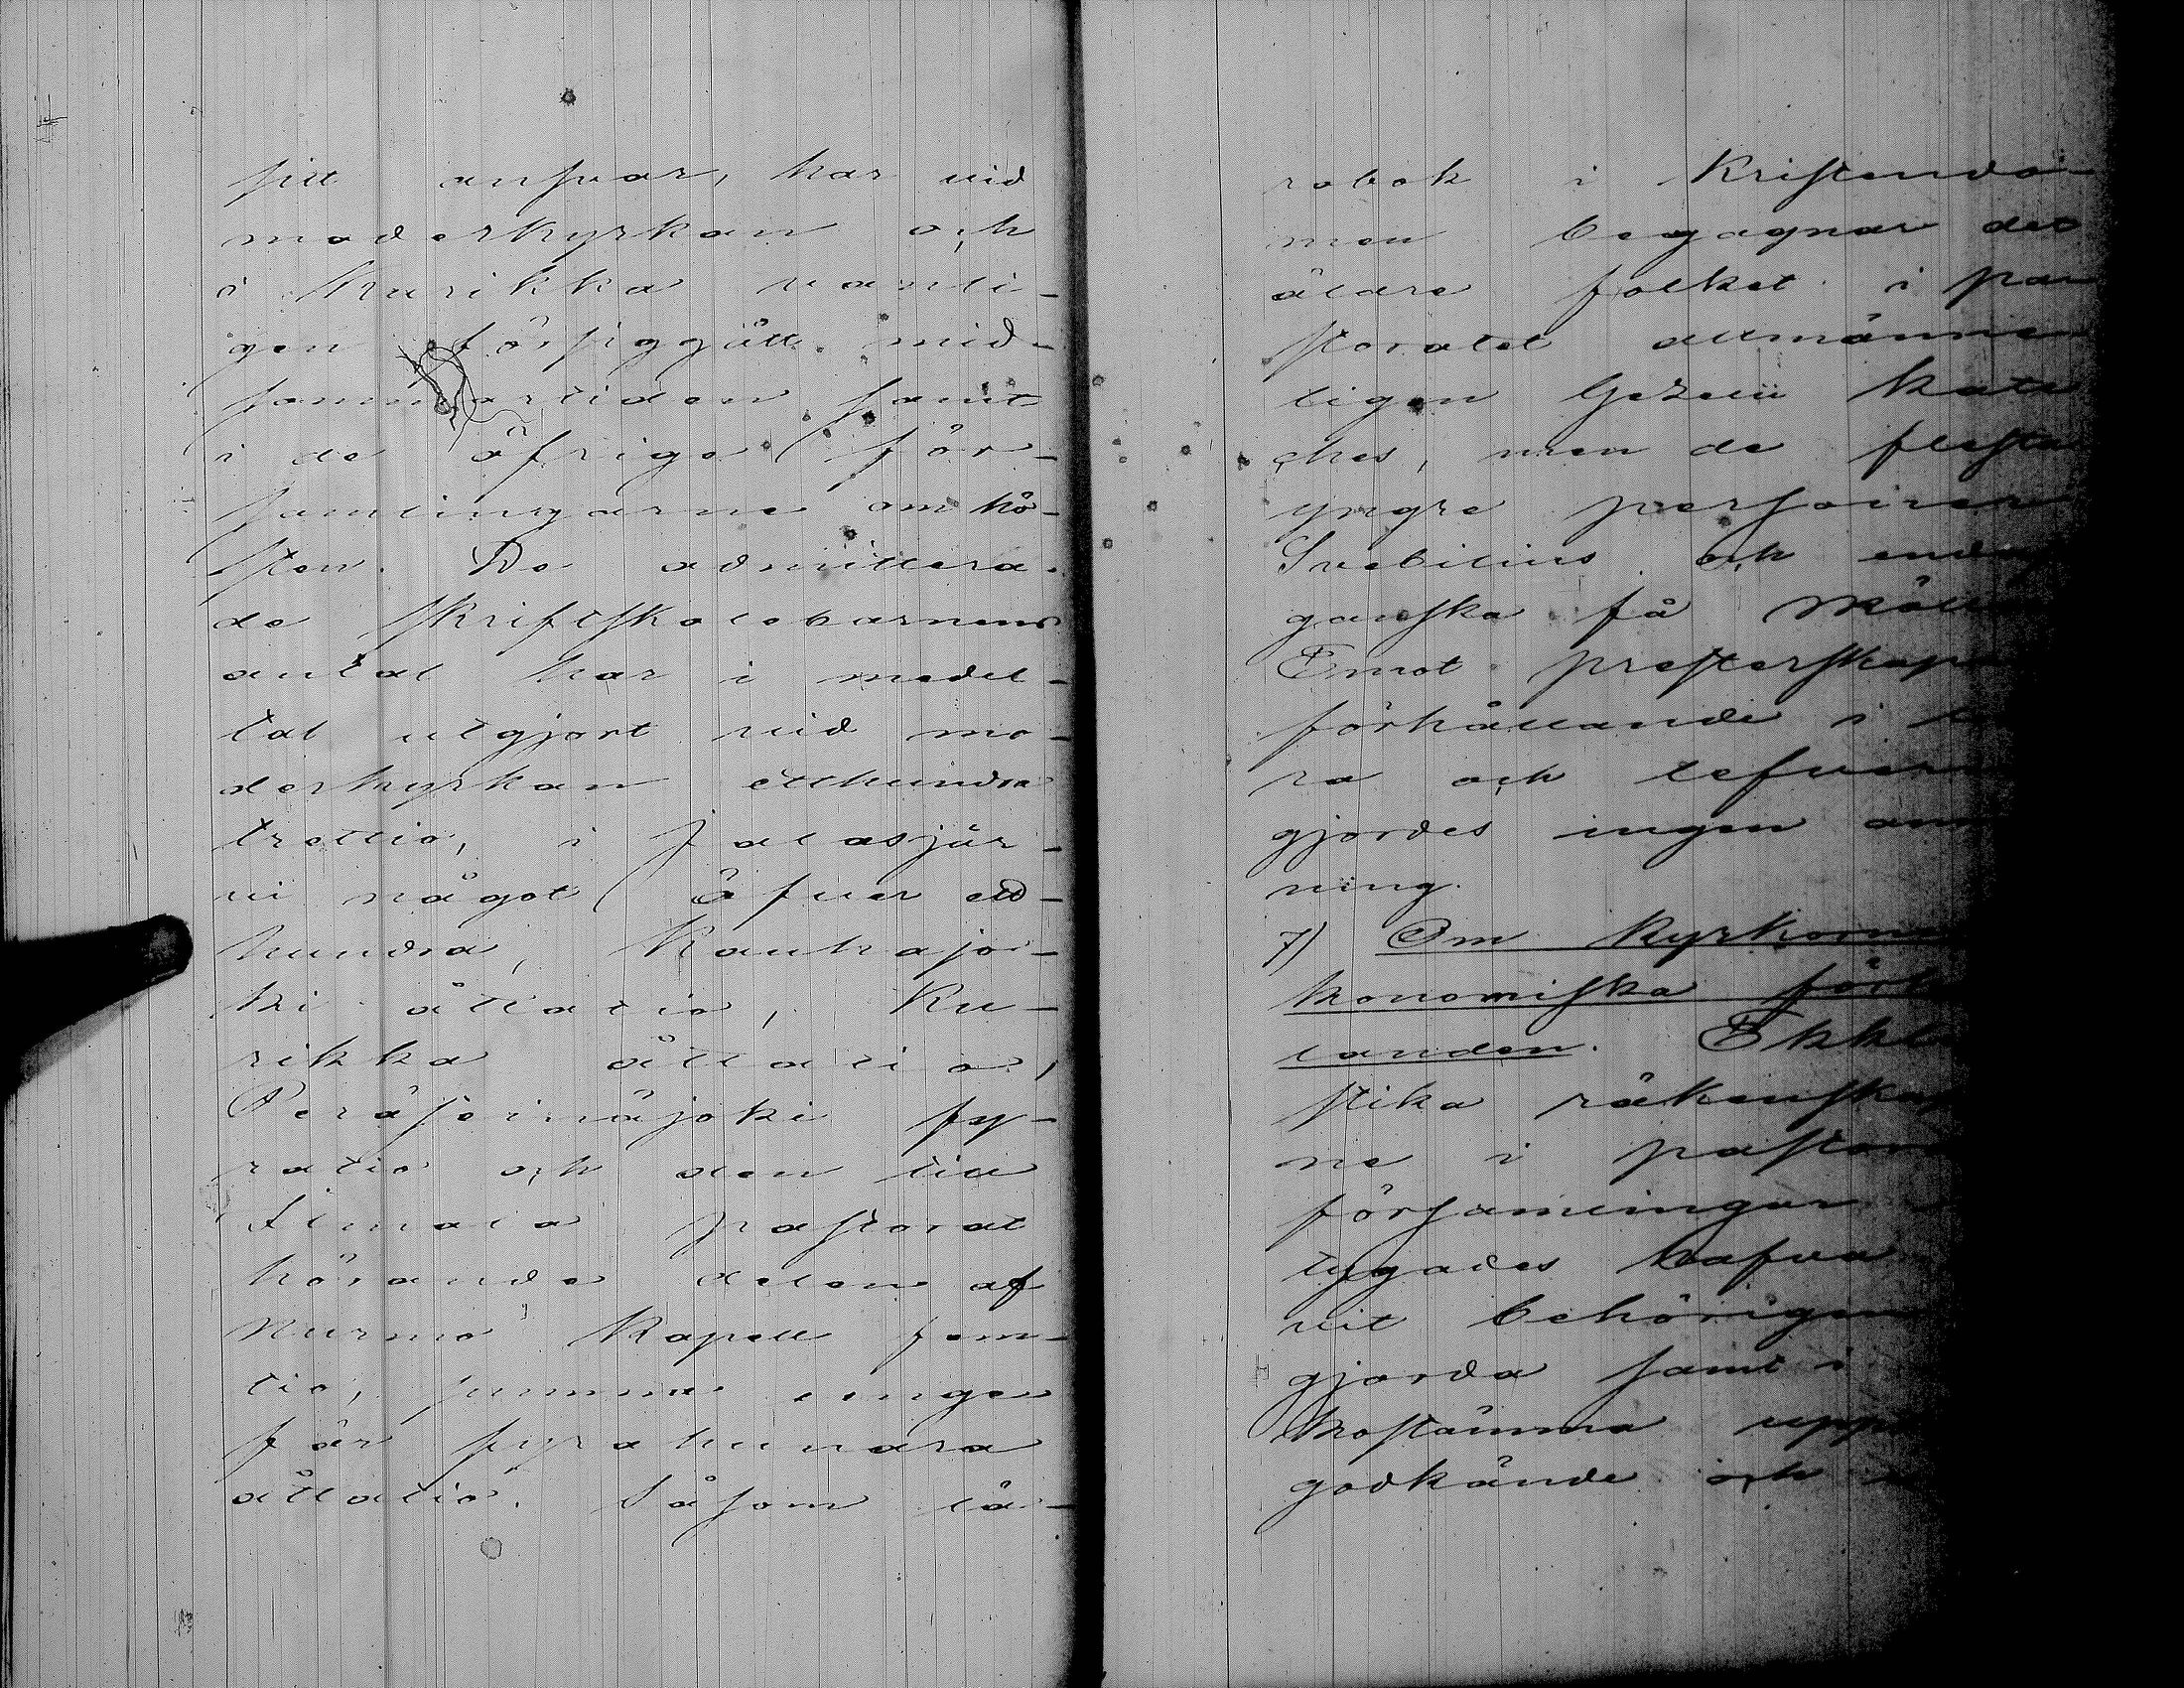 sitt ansvar, har vid
moderkyrkan och
i Kurikka vanli-
gen försiggått mid-
sommartiden samt
i de öfriga för-
samlingarne om hö-
sten. De admittera-
de skriftskolebarnens
antal har i medel-
tal utgjort vid mo-
derkyrkan etthundra
trettio, i Jalasjär-
vi något öfver ett-
hundra, Kauhajo-
ki åttatio, Ku-
rikka åttatio,
Peräseinäjoki fy-
ratio och den till
Ilmola pastorat
hörande delen af
Nurmo Kapell fem-
tio, summa unge-
fär fyrahundra
åttatio. Såsom lä-
robok i Kristendo-
men begagnar det
äldre folket i pa-
storatet allmänne-
ligen Gezelii kate-
ches, men de flesta
yngre personer
Svebilius och
ganska få
Emot presterskapets
förhållande i
ra och lefverne
gjordes ingen anm-
ning.
7) Om kyrkornas
konomiska förh
landen. Ekkle
stika räkenskap
ne i pastor
församlingar
tygades hafva
vit behörigen
gjorda samt i
kostämma upp
godkände och